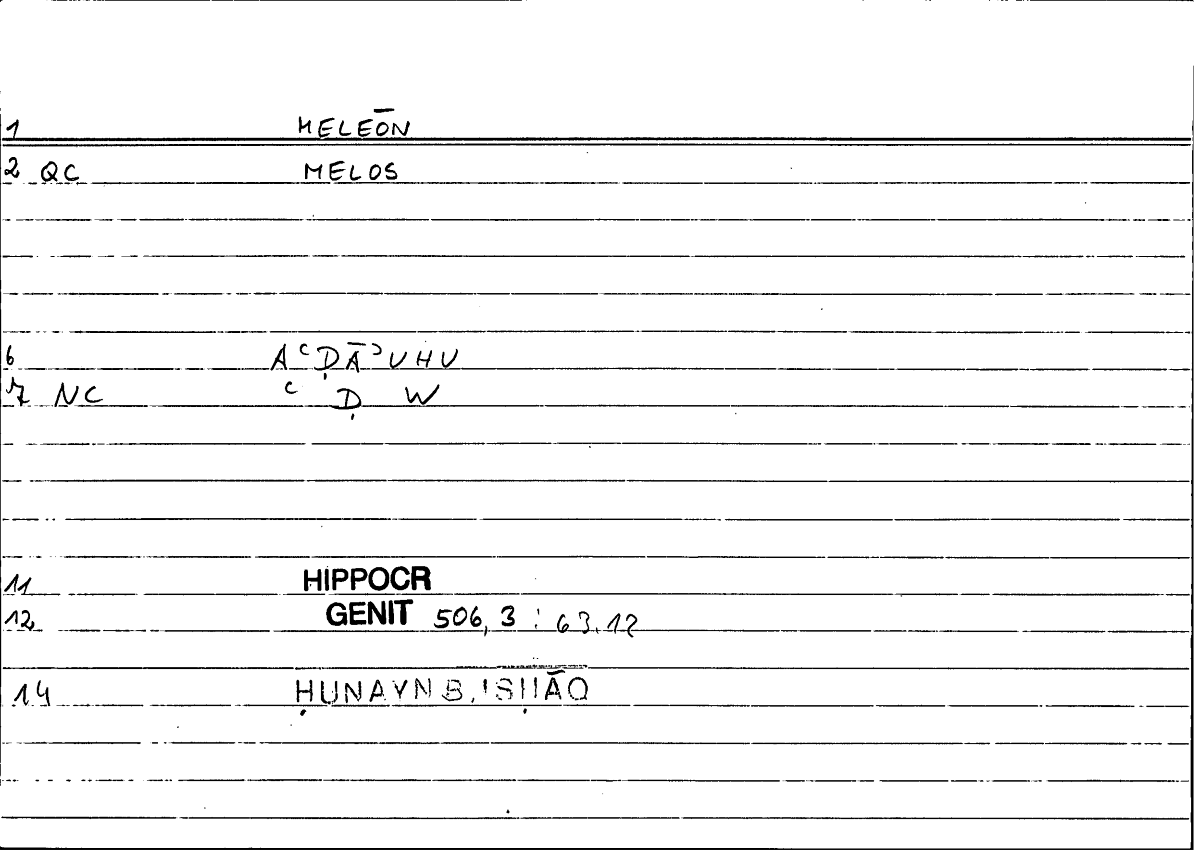 1 MELEŌN
2 QC MELOS
6 AʿḌĀʾUHU
7 NC ʿ Ḍ W
11 HIPPOCR
12 GENIT 506,3 : 63.12
14 ḤUNAYN B. ISḤĀQ